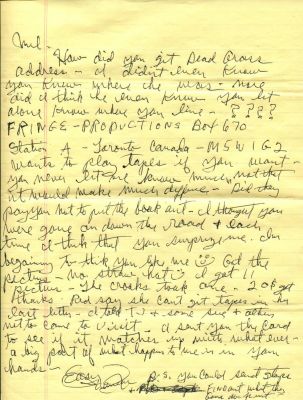 How did you get Dead Cross
address – I didn't even know
you knew where she was – more
did I think he even knew you let
alone know where you live – ? ? ? ?
FRINGE – PRODUCTIONS BOX 670
Station A – Toronto Canada – M5W1G2
wants to play tapes if you want –
you never let me know much not that
it would make much
you not to put the book out – I thought you
were going on down the road & each
time I think that you surprize me. Im
begaining to think you like me Got the
picture – no straw hat I got 11
picture – The crooks took one – 20 got
thanks. Red say she cant get tapes in her
last letter – I told T & some sue & others
not to come to visit – I sent you the card
to see if it matches up much what ever –
a big part of what happen to me is in your
hands –
Easy
P.S. you could send tapes
& find out what they